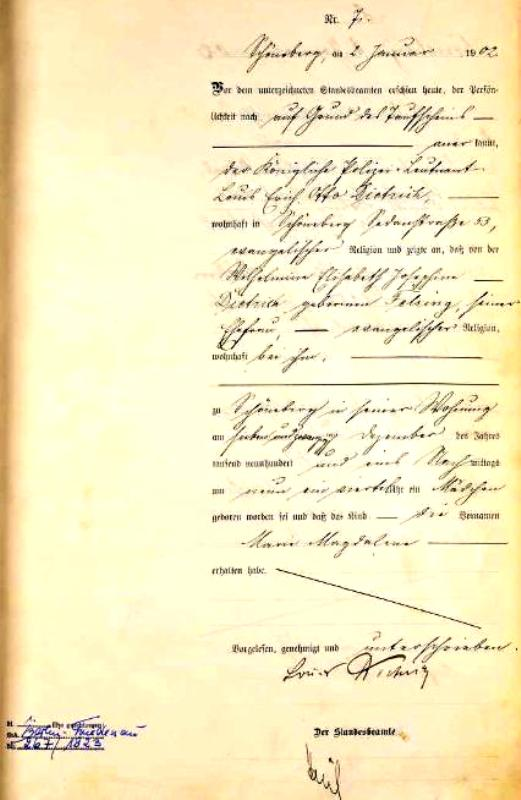 Nr. 7.
Schöneberg, am 2. Januar 1902
Vor dem unterzeichneten Standesbeamten erschien heute, der Persön-
lichkeit nach auf Grund des Taufscheins
anerkannt,
der Königliche Polizei-Leutnant
Louis Erich Otto Dietrich,
wohnhaft in Schöneberg Sedanstraße 53,
evangelischer Religion und zeigte an, daß von der
Wilhelmine Elisabeth Josephine
Dietrich geborenen Felsing, seiner
Ehefrau, evangelischer Religion,
wohnhaft bei ihm,
zu Schöneberg in seiner Wohnung
am siebenundzwanzigsten Dezember des Jahres
tausend neunhundert und eins Nachmittags
um neun ein viertel Uhr ein Mädchen
geboren worden sei und daß das Kind die Vornamen
Marie Magdalene
erhalten habe.
Vorgelesen, genehmigt und unterschrieben.
Louis Dietrich
Der Standesbeamte
Berlin-Friedenau
267/1923